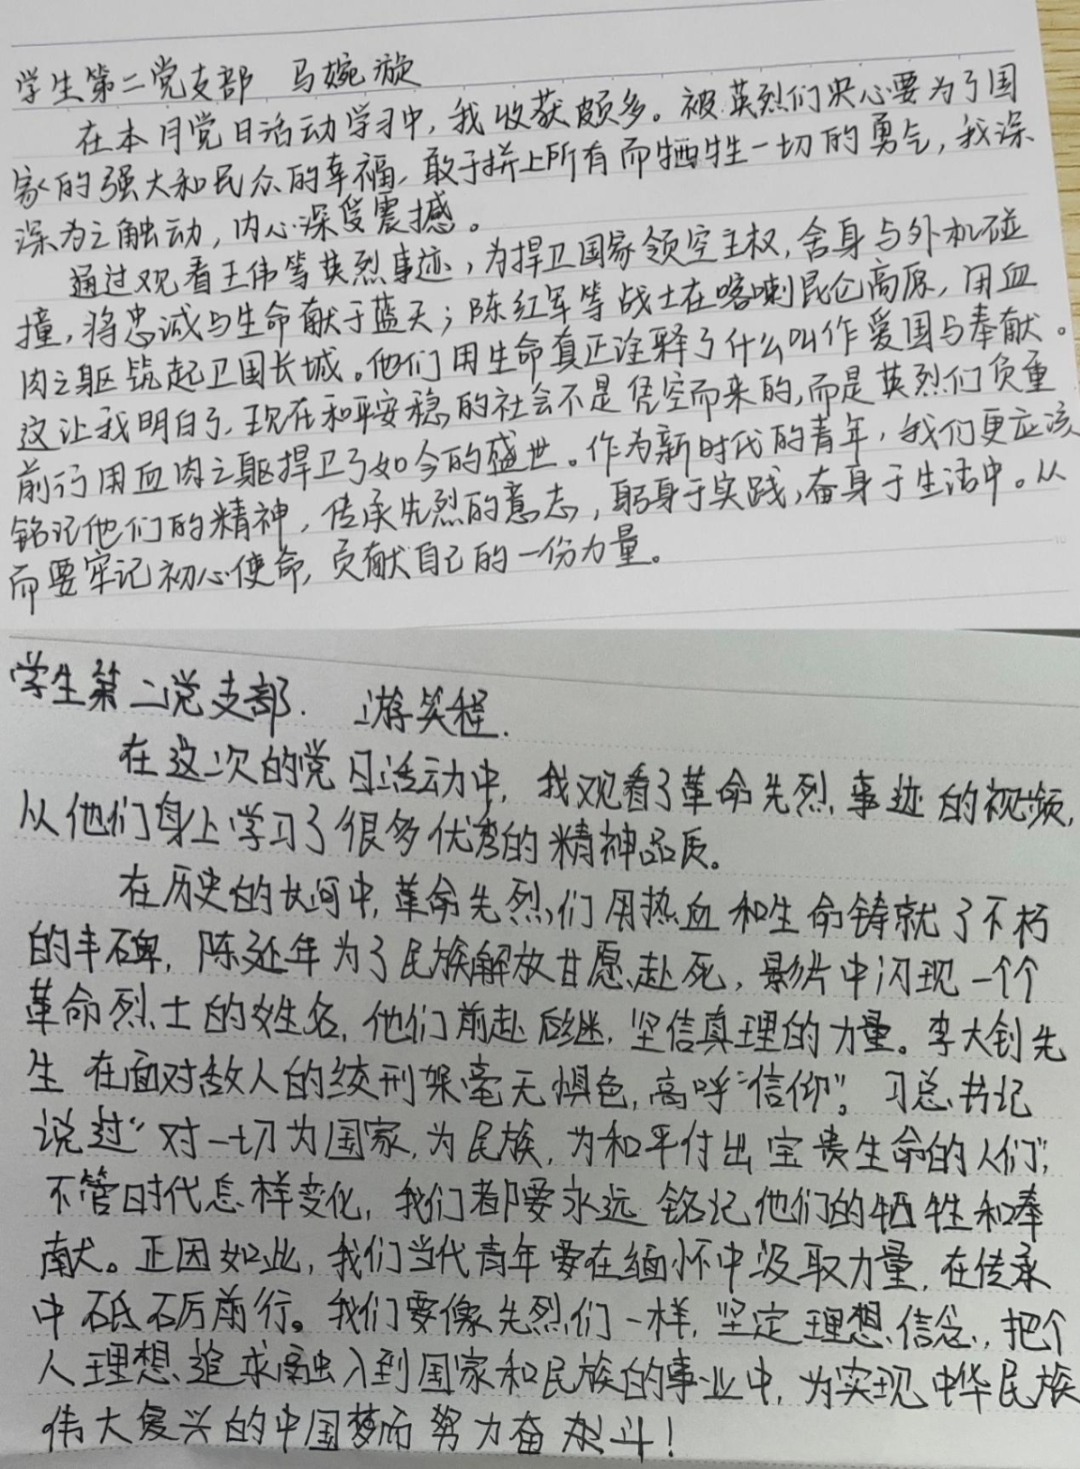 学生第二党支部 马婉漩
在本月党日活动学习中,我收获颇多。被英烈们决心要为了国
家的强大和民众的幸福,敢于拼上所有而牺牲一切的勇气,我深
深为之触动,内心深受震撼。
通过观看王伟等英烈事迹,为捍卫国家领空主权,舍身与外机碰
撞,将忠诚与生命献于蓝天;陈红军等战士在喀喇昆仑高原,用血
肉之躯筑起卫国长城。他们用生命真正诠释了什么叫作爱国与奉献。
这让我明白了,现在和平安稳的社会不是凭空而来的,而是英烈们负重
前行用血肉之躯捍卫了如今的盛世。作为新时代的青年,我们更应该
铭记他们的精神,传承先烈的意志,躬身于实践,奋身于生活中。从
而要牢记初心使命,贡献自己的一份力量。
学生第二党支部. 游笑程.
在这次的党日活动中,我观看了革命先烈事迹的视频,
从他们身上学习了很多优秀的精神品质。
在历史的长河中,革命先烈们用热血和生命铸就了不朽
的丰碑,陈延年为了民族解放甘愿赴死,影片中闪现一个个
革命烈士的姓名,他们前赴后继,坚信真理的力量。李大钊先
生在面对敌人的绞刑架毫无惧色,高呼“信仰”。习总书记
说过“对一切为国家,为民族,为和平付出宝贵生命的人们”,
不管时代怎样变化,我们都要永远铭记他们的牺牲和奉
献。正因如此,我们当代青年要在缅怀中汲取力量,在传承
中砥砺前行。我们要像先烈们一样,坚定理想信念,把个
人理想追求融入到国家和民族的事业中,为实现中华民族
伟大复兴的中国梦而努力奋斗!